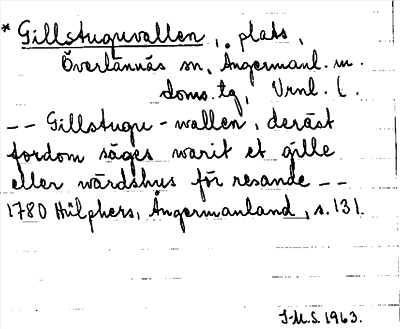 * Gillstuguvallen, plats,
Överlännäs sn, Ångermanl. m.
doms.tg, Vrnl. l.
-- Gillstugu-wallen, deräst
fordom säges warit et gille
eller wärdshus för resande --
1780 Hülphers, Ångermanland, s. 131.
J-M.S. 1963.